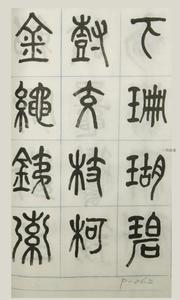 下珊瑚碧
樹交枝柯
金繩鐵索
P-062